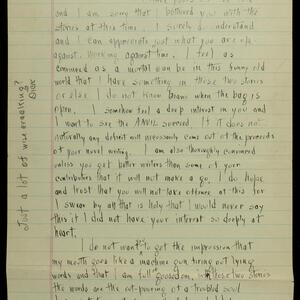 and I am sorry that I bothered you with the
stories at this time. I surely do understand
and I can appreciate just what you are up
against, working against time. I feel as
convinced as a mortal can be in this funny old
world that I have something in these two stories
or else I do not know beans when the bag is
open. I somehow feel a deep interest in you and
I want to see the ANVIL succeed. If it does not
naturally any deficit will necessarily come out of the proceeds
of your novel writing. I am also thoroughly convinced
unless you get better writers than some of your
contributors that it will not make a go. I do hope
and trust that you will not take offence at this for
I swear by all that is holy that I would never say
this if I did not have your interest so deeply at
heart.
I do not want to get the impression that
my mouth goes like a machine gun firing out lying
words and that I am full of In these two stories
the words are the out-pouring of a troubled soul
Just a lot of wise cracking?